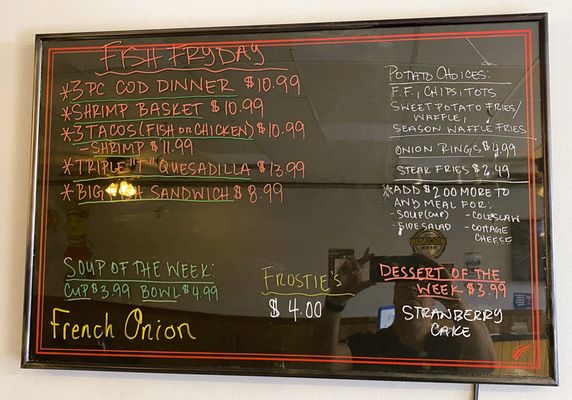 FISH FRYDAY
*3 PC COD DINNER $10.99
*SHRIMP BASKET $10.99
*3 TACOS (FISH OR CHICKEN) $10.99
- SHRIMP $11.99
*TRIPLE "T" QUESADILLA $13.99
*BIG FISH SANDWICH $8.99
POTATO CHOICES:
F.F., CHIPS, TOTS
SWEET POTATO FRIES/
WAFFLE,
SEASON WAFFLE FRIES
ONION RINGS $4.99
STEAK FRIES $2.49
*ADD $2.00 MORE TO
AND MEAL FOR:
- SOUP (CUP) - COLESLAW
- SIDE SALAD - COTTAGE
CHEESE
SOUP OF THE WEEK:
CUP $3.99 BOWL $4.99
French Onion
FROSTIE'S
$4.00
DESSERT OF THE
WEEK $3.99
STRANBERRY
CAKE